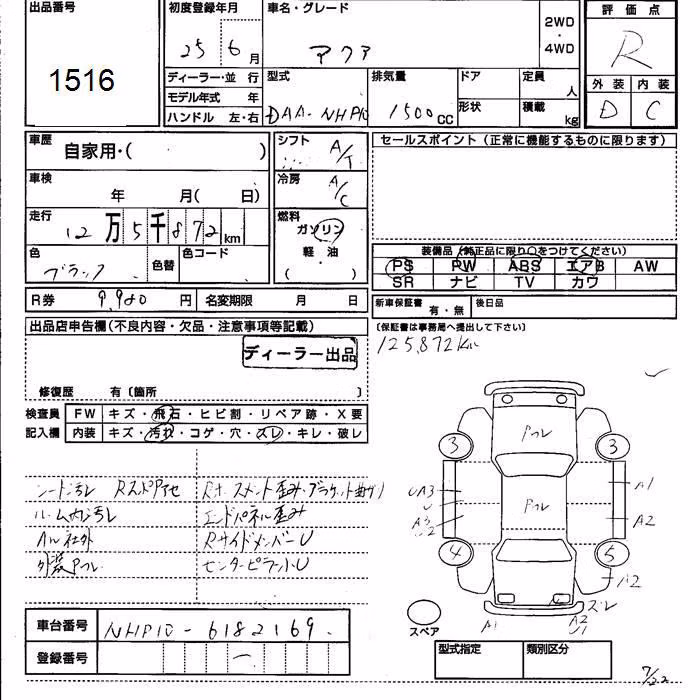 出品番号
1516
初度登録年月
25 6月
車名・グレード
アクア
2WD
・
4WD
評価点
R
外装 内装
D C
ディーラー・並行
モデル年式 年
ハンドル 左・右
型式
DAA-NHP10
排気量
1500cc
ドア
形状
定員
人
積載
kg
車歴
自家用・( )
シフト
A/T
セールスポイント (正常に機能するものに限ります)
車検
年 月( 日)
冷房
A/C
走行
12万5千872km
燃料
ガソリン
軽・油
( )
色
ブラック
色替
色コード
装備品(純正品に限り○をつけてください)
PS PW ABS エアB AW
SR ナビ TV カワ
R券 9,980円
名変期限 月 日
新車保証書
有・無
後日品
(保証書は事務局へ提出して下さい)
125,872Km
出品店申告欄(不良内容・欠品・注意事項等記載)
ディーラー出品
修復歴 有〔箇所 〕
検査員
記入欄
FW キズ・飛石・ヒビ割・リペア跡・X要
内装 キズ・汚れ・コゲ・穴・スレ・キレ・破レ
シート汚レ
ルーム内汚レ
AW社外
外装Pフレ
エンドパネル歪み
RサイドメンバーU
センターピラーU
Pフレ
Pフレ
3
3
4
5
UA3
U
A3
A1
A2
A2
スレ
A1
A2
U1
スペア
車台番号
NHP10-6182169
登録番号
型式指定
類別区分
7/22